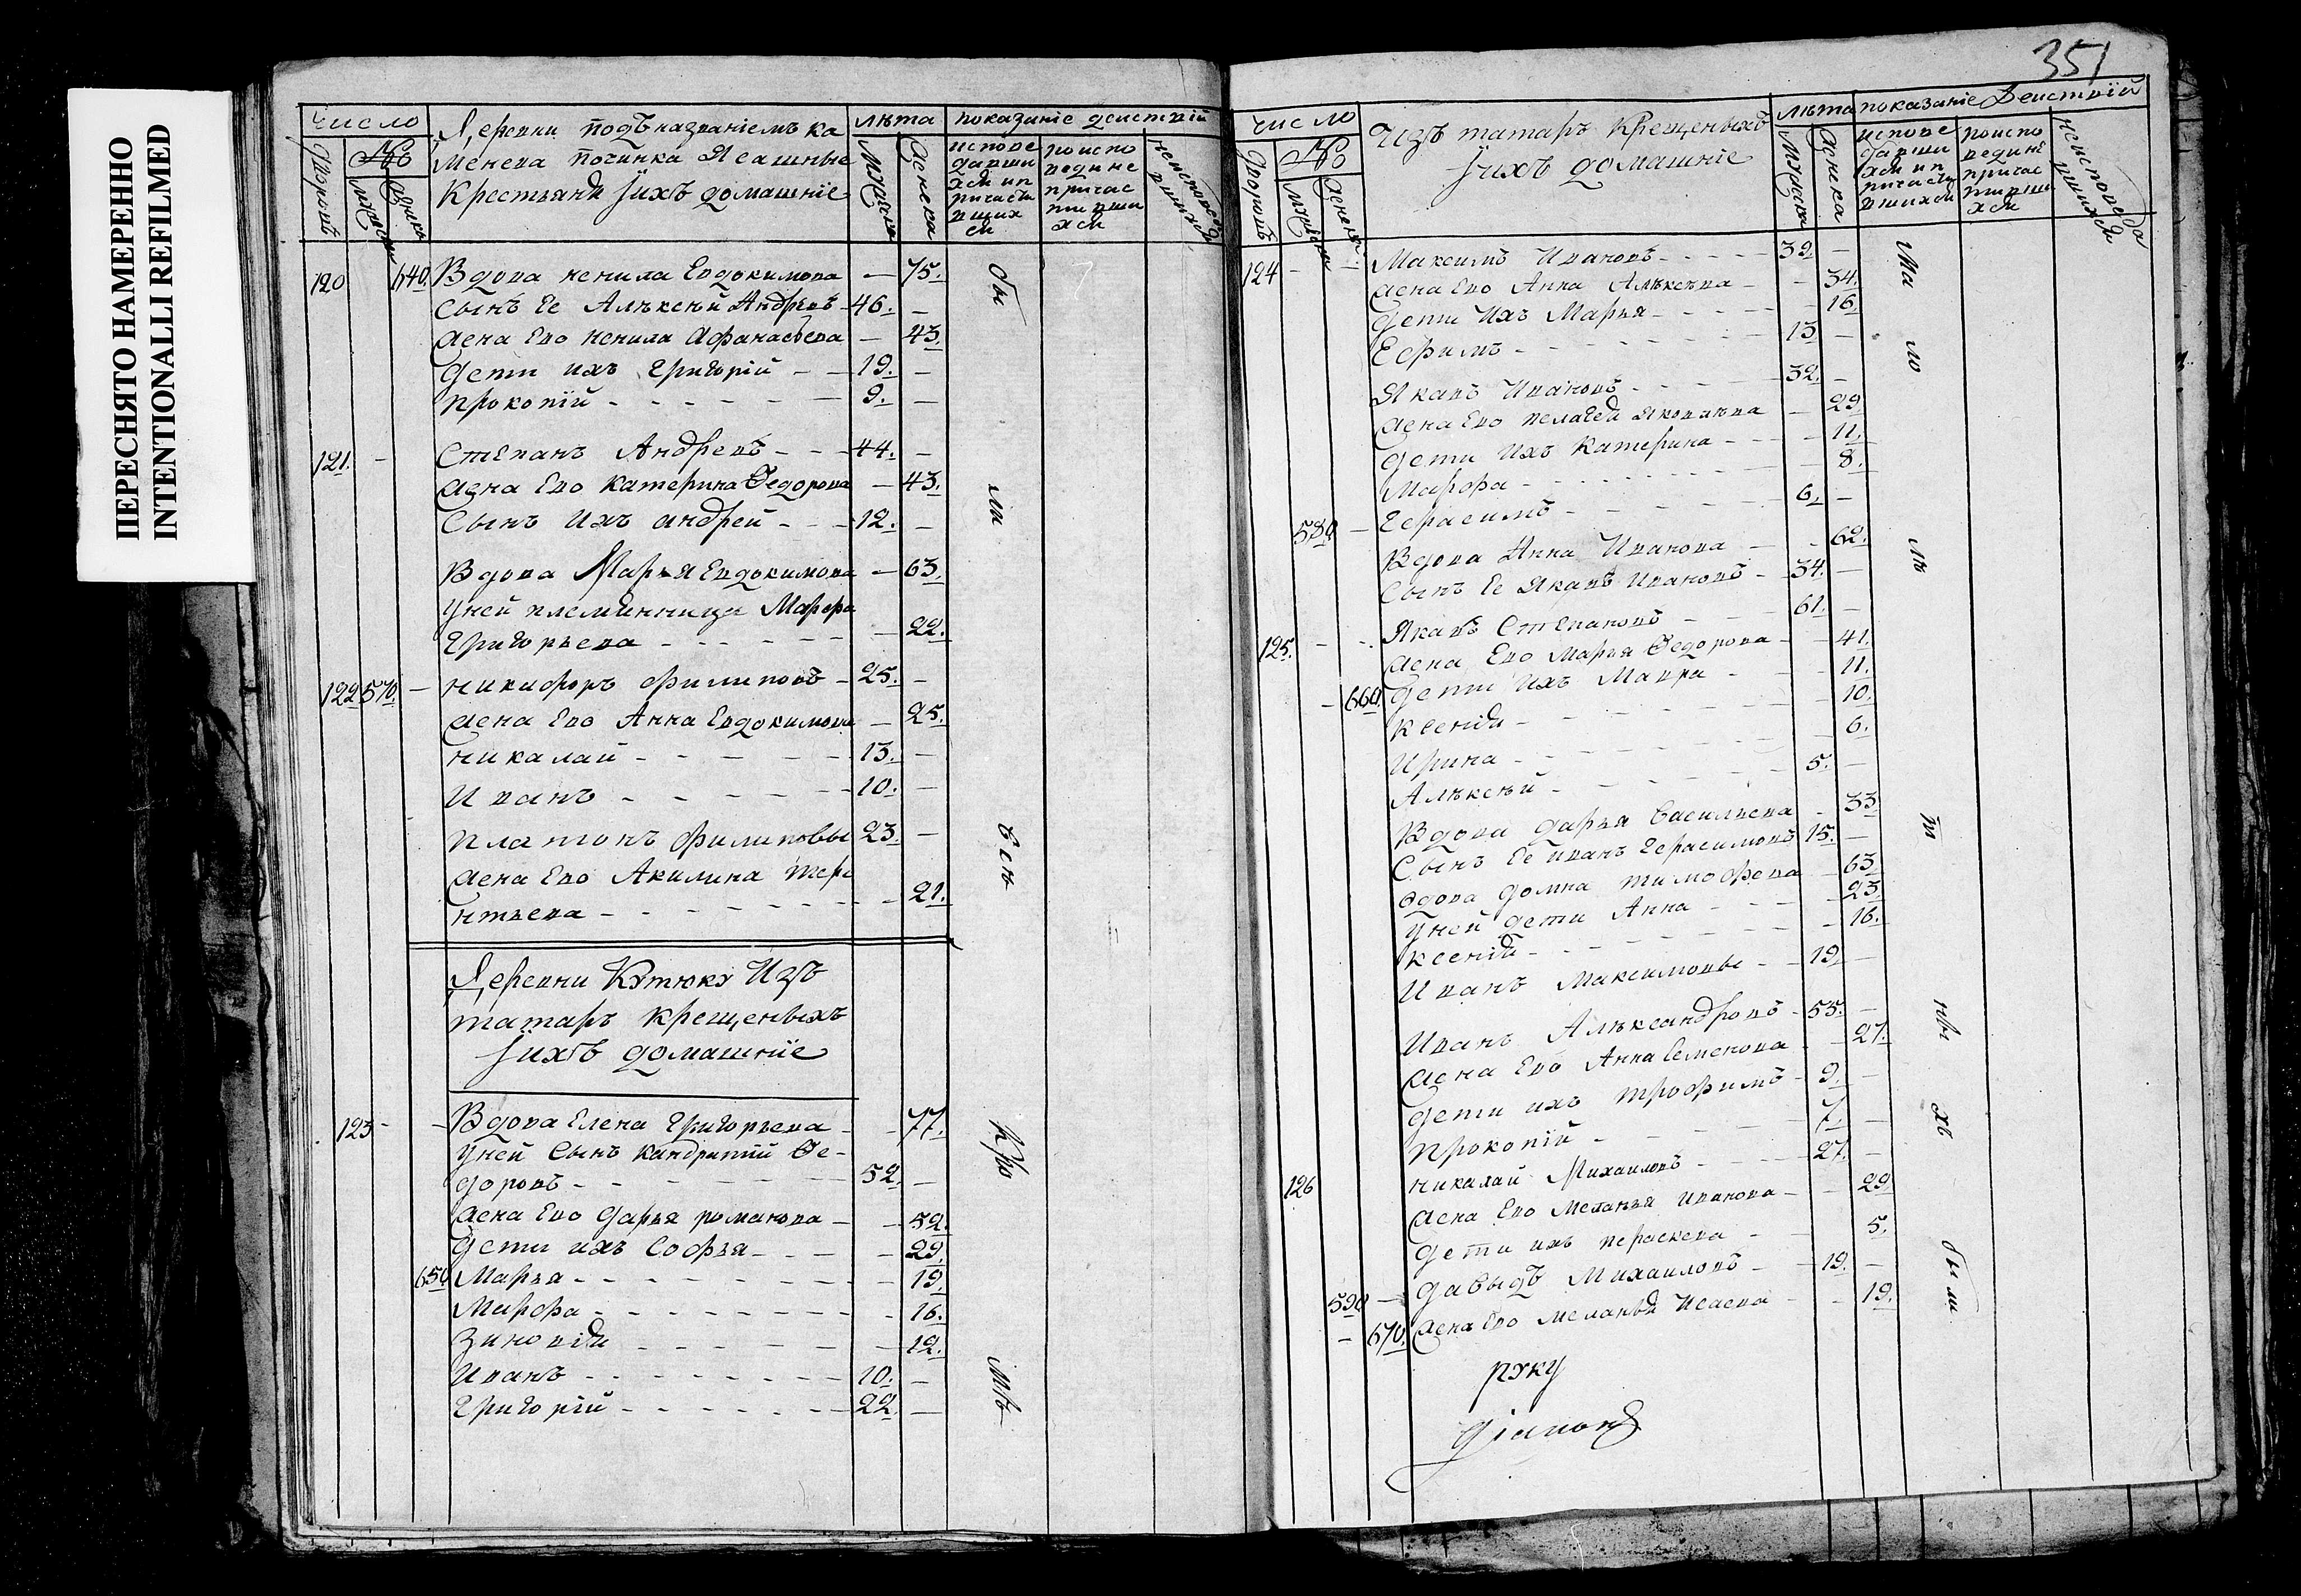 ПЕРЕСНЯТО НАМЕРЕННО
INTENTIONALLI REFILMED
число
Деревни подъ названіемъ ка
менева починка Ясашные
Крестьяня и ихъ домашніе
лѣта
показаніе деиствіи
дворовъ
№
мужска
женска
исповедавши
хся и п
ричасти
вших
ся
поиспо
ведине
причас
тивши
хся
120 640. Вдова ненила Евдокимова — 75.
Сынъ Ее Алѣксѣй Андрѣевъ 46. —
жена Ево ненила Афанасьева — 43.
дети ихъ григорій — — 19. —
прокопій — 9. —
121. — Степанъ Андревъ — — 44. —
жена Ево катерина Ѳедорова — 43.
Сынъ ихъ андрей — — 12. —
Вдова Марья Евдокимова — 63.
уней племянница Марфа
григорьева — 22.
122 570. — никифоръ филиповъ — 25. —
жена Ево Анна Евдокимова — 25.
никалай — 13. —
Иванъ — 10. —
платонъ филиповы 23. —
жена Ево Акилина тере
нтьева — 21.
Деревни Кутюку Изъ
татаръ крещеныхъ
и ихъ домашніе
123 — — Вдова Елена григорьева — — 77.
уней Сынъ кандратій Ѳе-
доровъ — 52. —
жена Ево дарья романова — — 52.
дети ихъ Софья — — 29.
650 Марья — 19.
Марфа — 16.
Зиновія — 12.
Иванъ — 10. —
григорій — 22. —
бы
ли
всѣ
кро
мѣ
351
число
Изъ татаръ крещеныхъ
и ихъ домашніе
лѣта
показаніе деиствій
дворовъ
№
мужска
женска
испове
давши
хся и п
ричасти
вшихся
поиспо
ведине
причас
тивши
хся
124 — — Максимъ Ивановъ — 32. —
жена Ево Анна Алѣксѣва — — 34.
дети ихъ Марья — — 16.
Ефримъ — 13. —
Якавъ Ивановъ — 32. —
жена Ево пелагея яковлѣва — 29.
дети ихъ катерина — — 11.
Марфа — — 8.
580 — герасимъ — 6. —
Вдова Анна Иванова — — 62.
Сынъ Ее Якавъ Ивановъ — 34. —
125. — — Якавъ Степановъ — 61. —
жена Ево Марья Ѳедорова — — 41.
— 660. дети ихъ Мавра — — 11.
ксенія — 10.
Ирина — 6.
Алѣксѣй — 5. —
Вдова дарья Васильева — 33.
Сынъ Ее иванъ герасимовъ 15. —
вдова домна тимофева — 63.
уней дети Анна — — 23.
ксенія — 16.
Иванъ Максимовы — 19. —
Иванъ Алѣксандровъ — 55. —
жена Ево Анна Семенова — — 27.
дети ихъ трофимъ — 9. —
прокопій — 7. —
126 никалай Михаиловъ — 27. —
жена Ево меланья иванова — — 29.
дети ихъ параскева — — 5.
590 — давыдъ Михаиловъ — 19. —
— 670. жена Ево меланья Исаева — — 19.
ма
ло
лѣ
т
ны
хъ
бы ли
руку
діяконъ